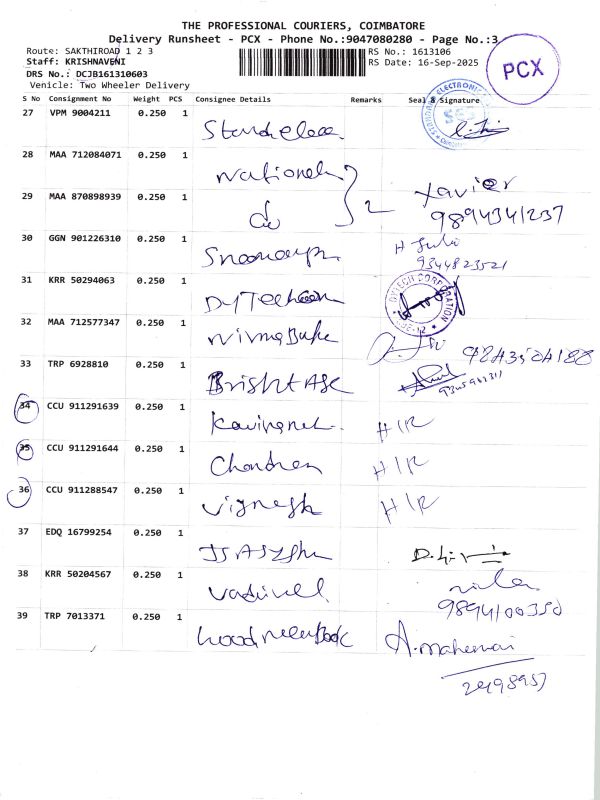 THE PROFESSIONAL COURIERS, COIMBATORE
Delivery Runsheet - PCX - Phone No.:9047080280 - Page No.:3
Route: SAKTHIROAD 1 2 3
RS No.: 1613106
Staff: KRISHNAVENI
RS Date: 16-Sep-2025
DRS No.: DCJB161310603
Vehicle: Two Wheeler Delivery
PCX
S No Consignment No Weight PCS Consignee Details Remarks Seal & Signature
27 VPM 9004211 0.250 1
28 MAA 712084071 0.250 1 National
29 MAA 870898939 0.250 1 do 2 Xavier
9894341237
30 GGN 901226310 0.250 1
9344823521
31 KRR 50294063 0.250 1
32 MAA 712577347 0.250 1
33 TRP 6928810 0.250 1
34 CCU 911291639 0.250 1 H/R
35 CCU 911291644 0.250 1 Chandran H/R
36 CCU 911288547 0.250 1 Vignesh H/R
37 EDQ 16799254 0.250 1
38 KRR 50204567 0.250 1 Vadivel
9894100350
39 TRP 7013371 0.250 1